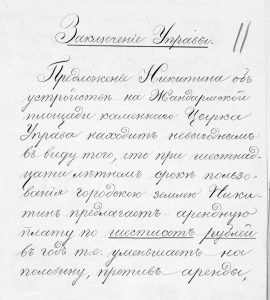 Заключеніе Управы.
11
Предложеніе Никитина объ
устройствѣ на Жандармской
площади каменнаго Цирка
Управа находитъ невыгоднымъ
въ виду того, что при шестнад-
цати лѣтнемъ срокѣ пользо-
ванія городскою землею Ники-
тинъ предлагаетъ арендную
плату по шестисотъ рублей
въ годъ т.е. уменьшаетъ на
половину, противъ аренды,